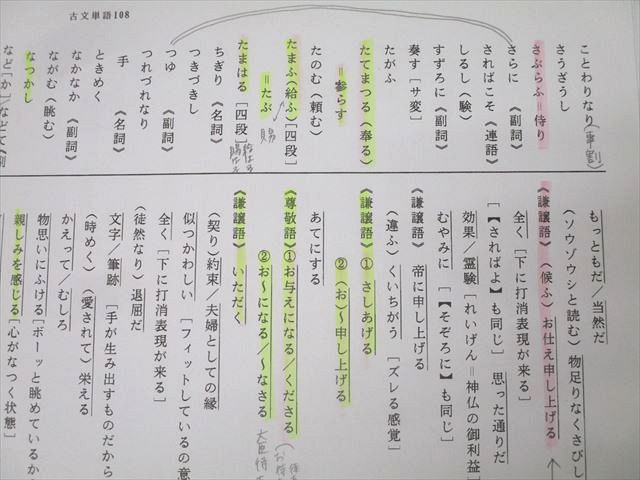 古文単語108
ことわりなり(事割)
もっともだ/当然だ
さうざうし
(ソウゾウシと読む) 物足りなくさびし
さぶらふ=侍り
《謙譲語》(候ふ) お仕え申し上げる
さらに 《副詞》
全く[下に打消表現が来る]
さればこそ 《連語》
[【さればよ】も同じ] 思った通りだ
しるし(験)
効果/霊験[れいげん=神仏の御利益]
すずろに《副詞》
むやみに [【そぞろに】も同じ]
奏す[サ変]
《謙譲語》 帝に申し上げる
たがふ
(違ふ) くいちがう [ズレる感覚]
たてまつる(奉る)
《謙譲語》① さしあげる
=参らす
②(お)~申し上げる
たのむ(頼む)
あてにする
たまふ(給ふ)[四段]
《尊敬語》①お与えになる/くださる
=たぶ 賜
②お~になる/~なさる
たまはる [四段]
《謙譲語》 いただく
ちぎり 《名詞》
(契り)約束/夫婦としての縁
つきづきし
似つかわしい [フィットしているの意
つゆ 《副詞》
全く[下に打消表現が来る]
つれづれなり
(徒然なり)退屈だ
手 《名詞》
文字/筆跡 [手が生み出すものだから
ときめく
(時めく) (愛されて)栄える
なかなか 《副詞》
かえって/むしろ
ながむ(眺む)
物思いにふける[ボーッと眺めているか
なつかし
親しみを感じる[心がなつく状態]
など[か]/などて《副